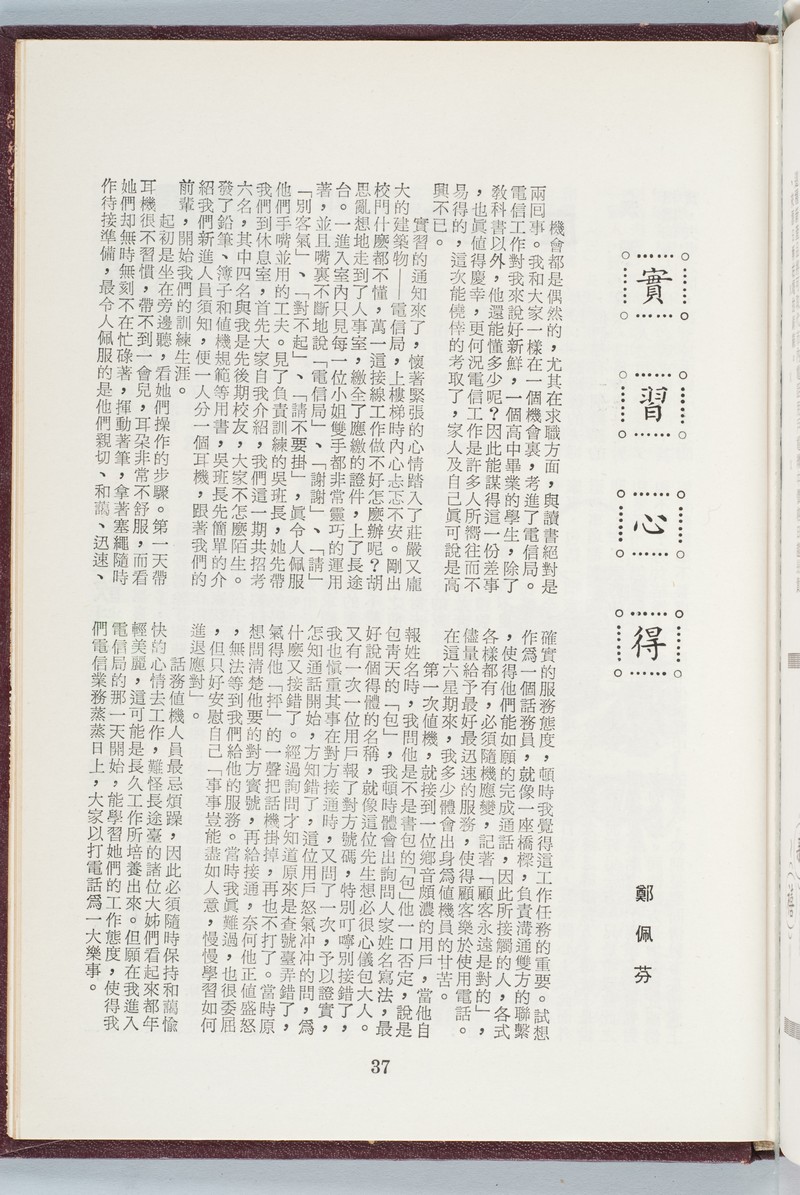 實習心得
鄭佩芬
機會都是偶然的，尤其在求職方面，與讀書絕對是
兩回事。我和大家一樣在一個機會裏，考進了電信局。
電信工作對我來說好新鮮，一個高中畢業的學生，除了
教科書以外，他還能懂多少呢？因此能謀得這一份差事
，也眞値得慶幸，更何況電信工作是許多人所嚮往而不
易得的，這次能僥倖的考取了，家人及自己眞可說是高
興不已。
實習的通知來了，懷著緊張的心情踏入了莊嚴又龐
大的建築物——電信局，上樓梯時內心忐忑不安。剛出
校門什麼都不懂，萬一這接線工作做不好怎麼辦呢？胡
思亂想地走到了人事室，繳全了應繳的證件，上了長途
台。一進入室內只見每一位小姐雙手都非常靈巧的運用
著，並且嘴裏不斷地說「電信局」、「謝謝」、「請」
「別客氣」、「對不起」、「請不要掛」，眞令人佩服
他們手嘴並用的工夫。見了負責訓練的吳班長，她先帶
我們到休息室，首先大家自我介紹，我們這一期共招考
六名，其中四名與我是先後期校友，大家不怎麼陌生。
發了鉛筆、簿子和値機規範等用書，吳班長先簡單的介
紹我們新進人員須知，便一人分一個耳機，跟著我們的
前輩，開始我們的訓練生涯。
起初是坐在旁邊聽，看她們操作的步驟。第一天帶
耳機很不習慣，帶不到一會兒，耳朶非常不舒服，而看
她們却無時無刻不在忙碌著，揮動著筆，拿著塞繩隨時
作待接準備，最令人佩服的是他們親切、和藹、迅速、
確實的服務態度，頓時我覺得這工作任務的重要。試想
作爲一個話務員，就像一座橋樑，負責溝通雙方的聯繫
，使得他們能如願的完成通話，因此所接觸的人，各式
各樣都有，必須隨機應變，記著「顧客永遠是對的」，
儘量給予最好最迅速的服務，使得顧客樂於使用電話。
在這六星期來，我多少體會出身爲値機員的甘苦。
第一次値機，就接到一位鄉音頗濃的用戶，當他自
報姓名時，我問他是不是書包的「包」他一口否定，說是
包靑天的「包」，我頓時體會出詢問人家姓名寫法，最
好說個得體的名稱，就像這位先生想必很心儀包大人。
又有一次一位用戶報了對方號碼，特別叮嚀別接錯了，
我也愼重其事在對方接通時，又問了一次，予以證實，
怎知通話開始，方知錯了，這位用戶怒氣冲冲的問，爲
什麼又接錯了。經過詢問才知道原來是查號臺弄錯了，
氣得他「抨」的一聲把話機掛掉，再也不打了。當時原
想問清楚他要的對方寶號，再給接通，奈何他正値盛怒
，無法等到我們給他的服務。當時我眞難過，也很委屈
，但只好安慰自己「事事豈能盡如人意，慢慢學習如何
進退應對」。
話務値機人員最忌煩躁，因此必須隨時保持和藹愉
快的心情去工作，難怪長途臺的諸位大姊們看起來都年
輕美麗，這可能是長久工作所培養出來。但願在我進入
電信局的那一天開始，能學習她們的工作態度，使得我
們電信業務蒸蒸日上，大家以打電話爲一大樂事。
37